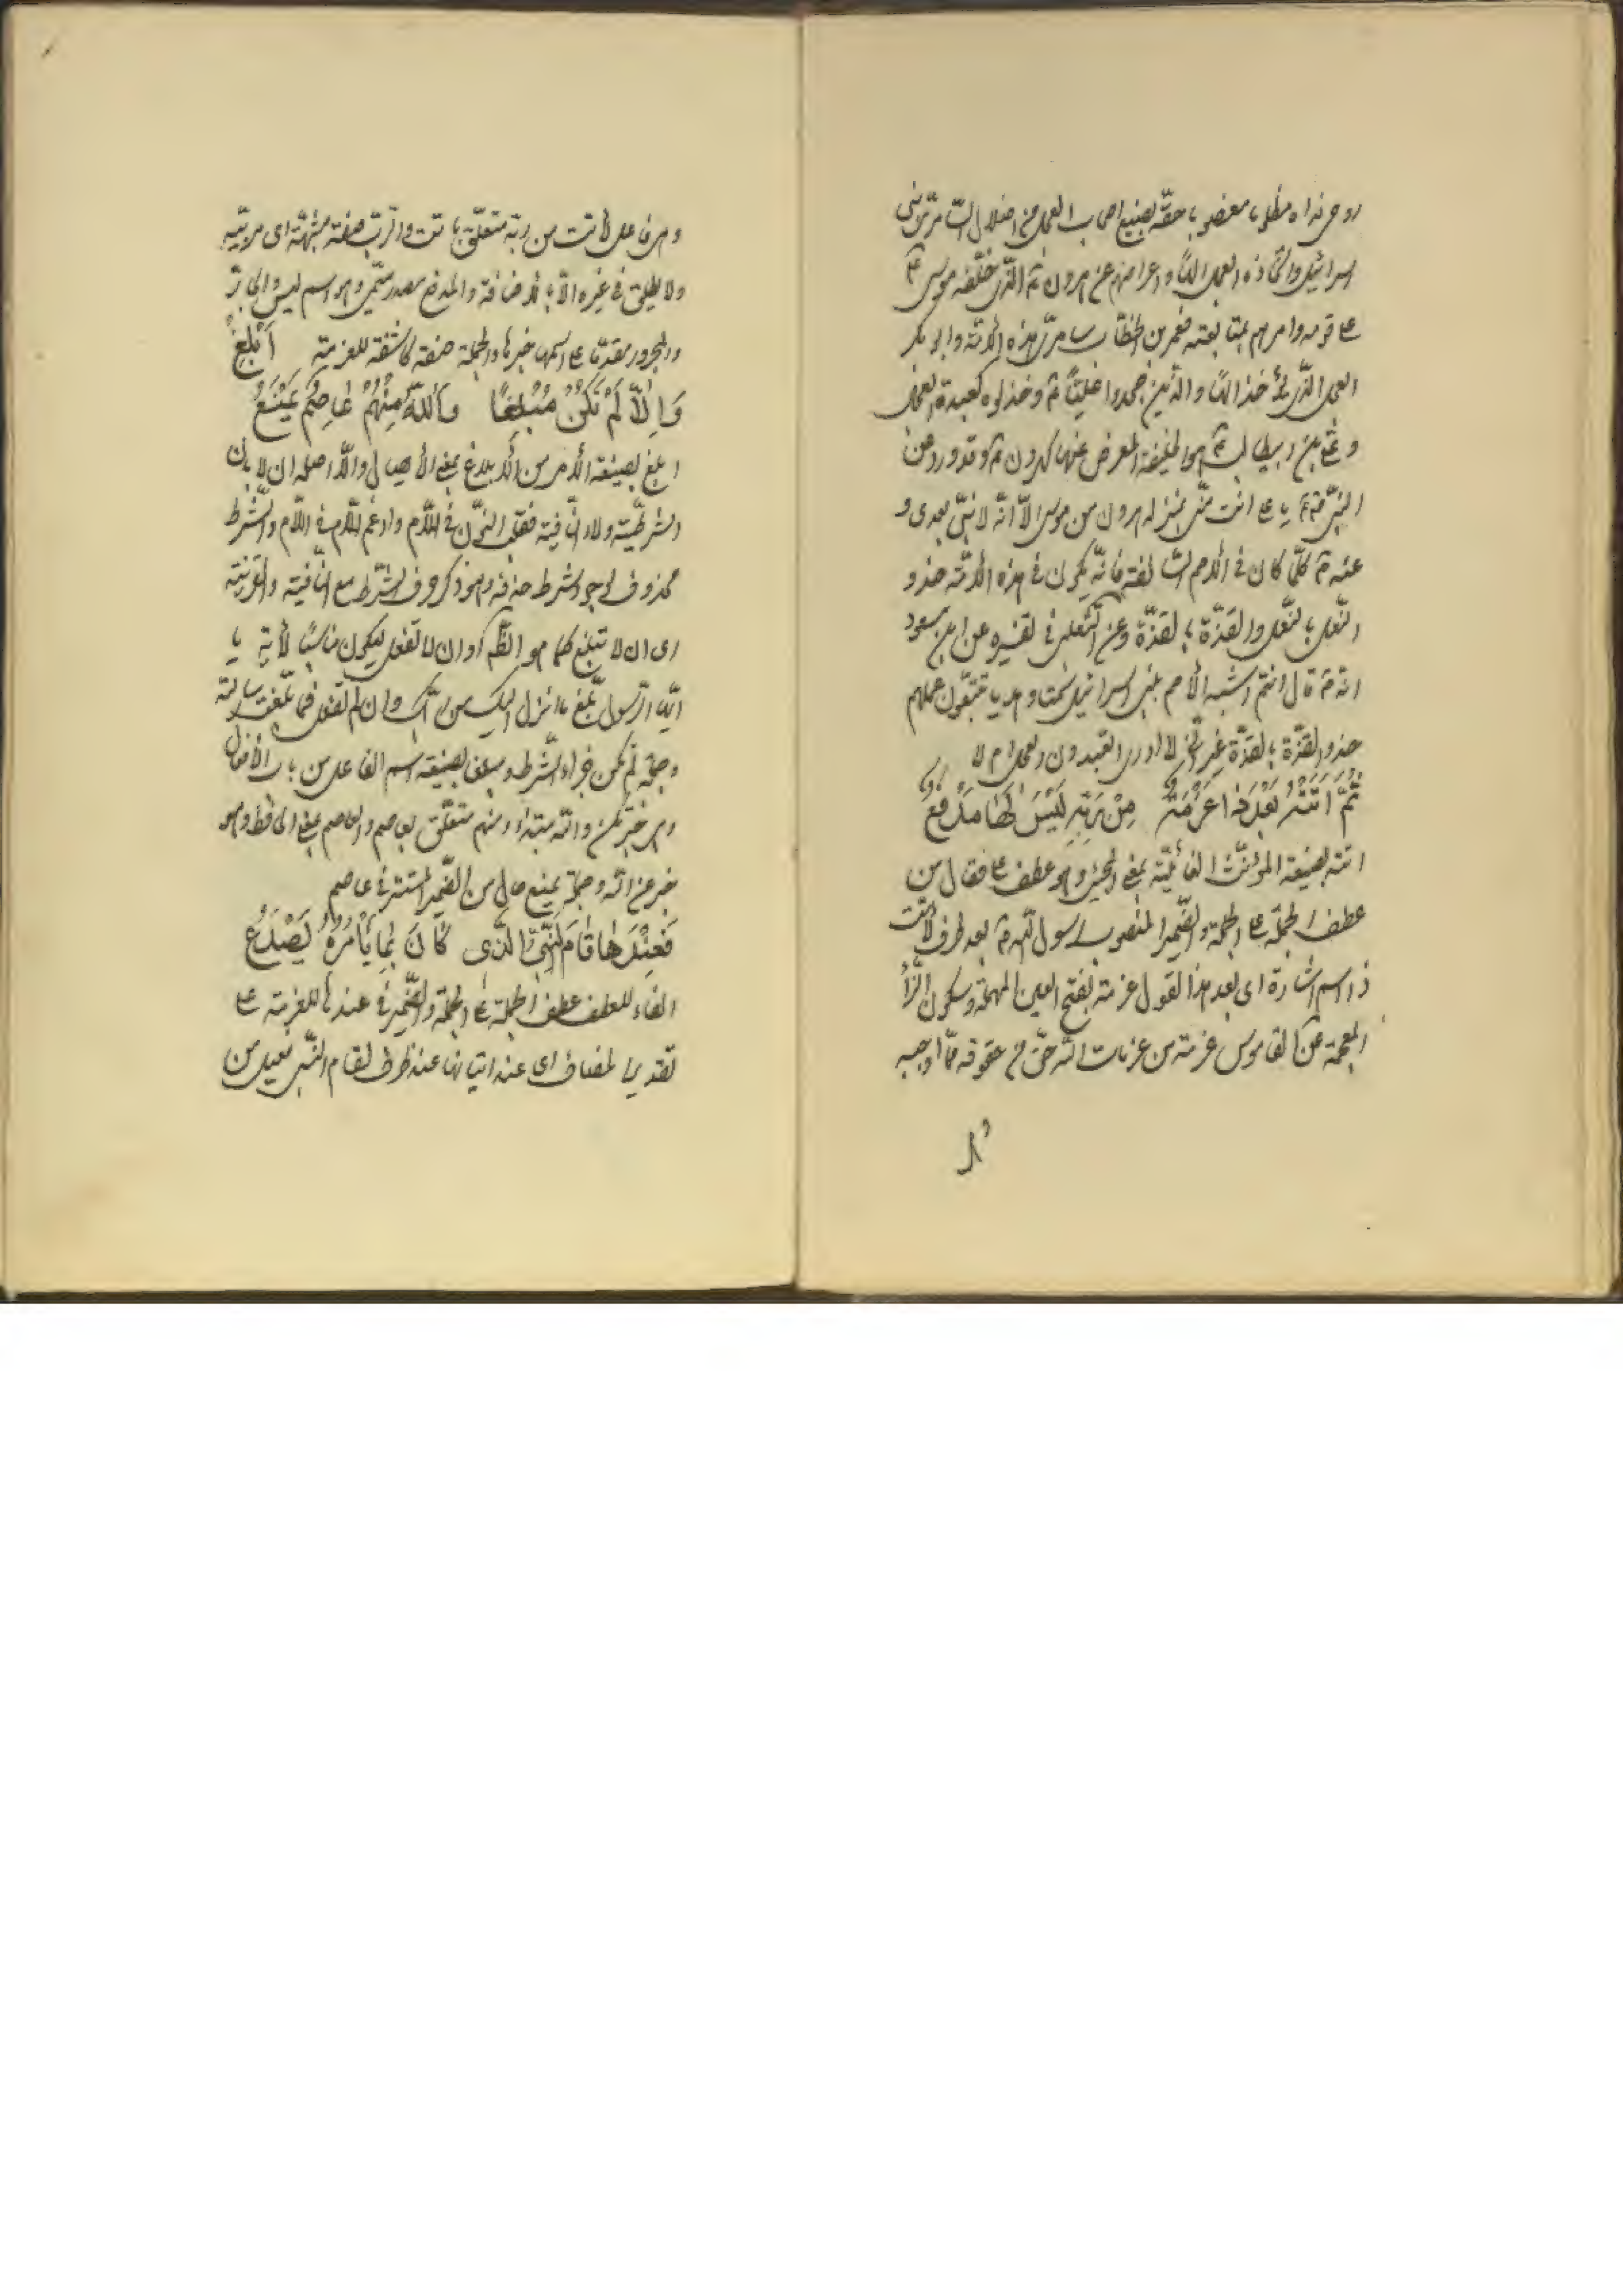 روحی فداه مظلوما مغصوبا حقه بصنیع اصحاب العجل من اضلال السامرّی بنی
اسرائیل واتخاذه العجل الها واعراضهم عن هرون ع الذی خلّفه موسی ع
علی قومه وامرهم بمتابعته فعمر بن الخطاب سامرّی هذه الامّة وابو بکر
العجل الذی اتخذ الها والذین جحدوا علیّا ع وخذلوه کعبدة العجل
وعلی بن ابی طالب ع هو الخلیفة المعرض عنها کهرون ع وقد ورد عن
النبی ص یا علی انت منّی بمنزلة هرون من موسی الّا انّه لا نبیّ بعدی و
عنه ص کلّما کان فی الأمم السالفة فانّه یکون فی هذه الأمّة حذو
النّعل بالنّعل والقذّة بالقذّة وعن الثعلبی فی تفسیره عن ابن مسعود
انه ص قال انتم اشبه الأمم ببنی اسرائیل سمتا وهدیا تتبعون عملهم
حذو القذّة بالقذّة غیر انّی لا ادری اتعبدون العجل ام لا
ثُمَّ اَتَتْهُ بَعْدَ ذا عَزْمَةٌ مِنْ رَبِّهِ لَیْسَ لَها مَدْفَعٌ
اتته بصیغة المؤنّث الغائبة بمعنی المجیئ وهو عطف علی فقال من
عطف الجملة علی الجملة والضّمیر المنصوب لرسول الله ص بعد ظرف لاتت
ذا اسم اشارة ای بعد هذا القول عزمة بفتح العین المهملة وسکون الزّاء
المعجمة عن القاموس عزمة من عزمات الله حقّ من حقوقه ممّا اوجبه
وهی فاعل لاتت من ربه متعلّق باتت والرّب صفة مشبهة ای مربّیه
ولا یطلق فی غیره الّا بالاضافة والمدفع مصدر میمی وهو اسم لیس والجارّ
والمجرور مقدّما علی اسمها خبرها والجملة صفة کاشفة للعزمة اَبْلِغْ
وَاِلّا لَمْ تَکُنْ مُبْلِغًا وَاللهُ مِنْهُمْ عاصِمٌ یَمْنَعُ
ابلغ بصیغة الأمر من الأبلاغ بمعنی الأیصال والّا اصله ان لا بان
الشرطیّة ولا النافیة فقلب النّون فی اللّام وادغم اللّام فی اللّام والشّرط
محذوف لوجود شرط حذفه وهو ذکر حرف الشّرط مع النافیة والقرینة
ای ان لا تبلغ کما هو الظّاهر او ان لا تفعل لیکون مناسبا لآیة یا
ایّها الرّسول بلّغ ما انزل الیک من ربّک وان لم تفعل فما بلّغت رسالته
وجملة لم تکن جزاء الشّرط ومبلغا بصیغة اسم الفاعل من باب الأفعال
وهی خبر تکن والله مبتداء ومنهم متعلّق بعاصم والعاصم بمعنی الحافظ وهو
خبر عن الله وجملة یمنع حال من الضّمیر المستتر فی عاصم
فَعِنْدَها قامَ النَّبِیُّ الَّذی کانَ بِما یَأْمُرُهُ یَصْدَعُ
الفاء للعطف عطف الجملة علی الجملة والضّمیر فی عندها للعزمة علی
تقدیر المضاف ای عند اتیانها عند ظرف لقام النبیّ فعیل من